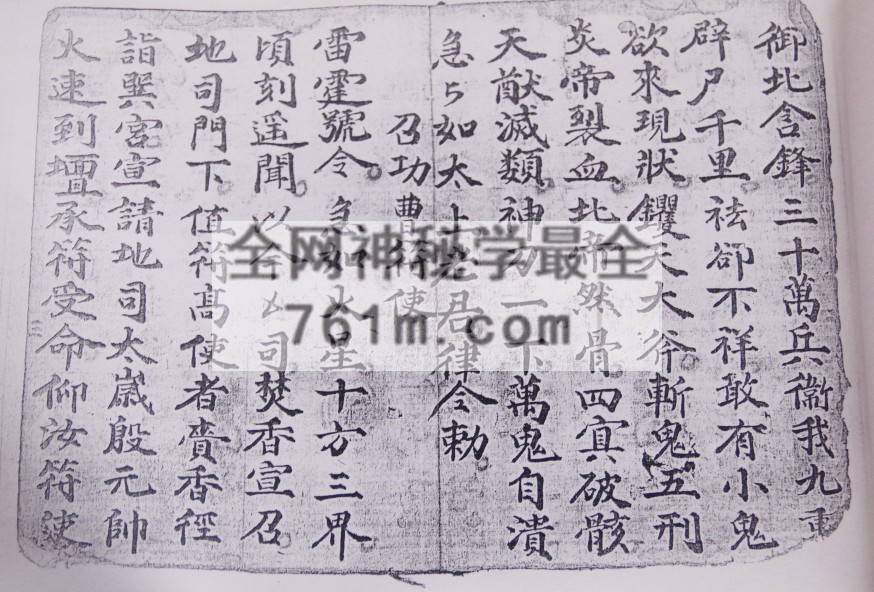 御北含鋒三十萬兵衞我九重
辟尸千里祛卻不祥敢有小鬼
欲來現狀钁天大斧斬鬼五刑
炎帝裂血北帝然骨四冥破骸
天猷滅類神刀一下萬鬼自潰
急々如太上老君律令勅
召功曹符使
雷霆號令急如火星十方三界
頃刻遥聞以今厶司焚香宣召
地司門下值符髙使者賫香徑
詣巽宮宣請地司太歲殷元帥
火速到壇承符受命仰汝符使
全网神秘学最全
761m.com